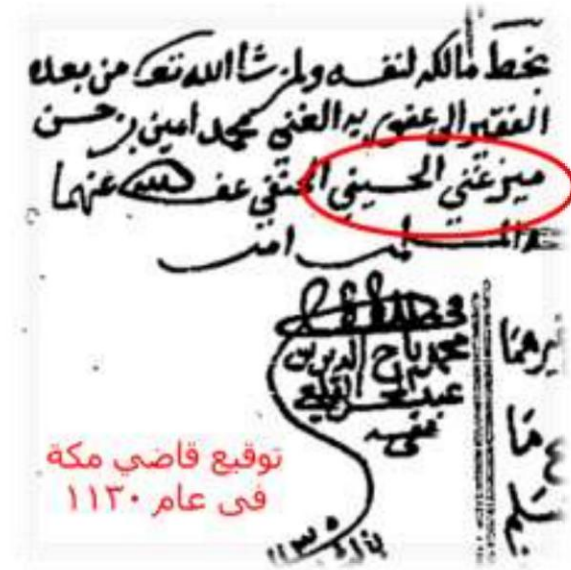 بخط مالكه لنفسه ولمن شا الله تعا من بعده
الفقير الى عفو ربه الغني محمد امين بن حسن
ميرغني الحسيني الحنفي عف الله عنهما
والمسلمين امين
محمد تاج الدين بن
عبد المحسن القلعي
عفي عنه
توقيع قاضي مكة
في عام ١١٣٠
يرهما
ما